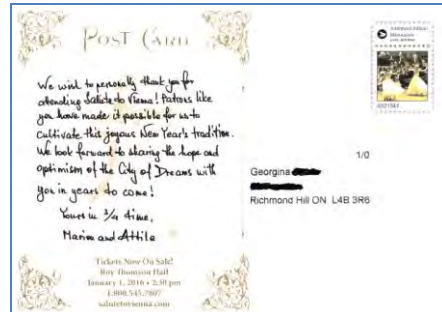 POST CARD
We wish to personally thank you for
attending Salute to Vienna! Patrons like
you have made it possible for us to
cultivate this joyous New Year's tradition.
We look forward to sharing the hope and
optimism of the City of Dreams with
you in years to come!
Yours in 3/4 time,
Marion and Attila
Tickets Now On Sale!
Roy Thomson Hall
January 1, 2016 • 2:30 pm
1.800.545.7807
salutetovienna.com
1/0
Georgina
Richmond Hill ON L4B 3R6